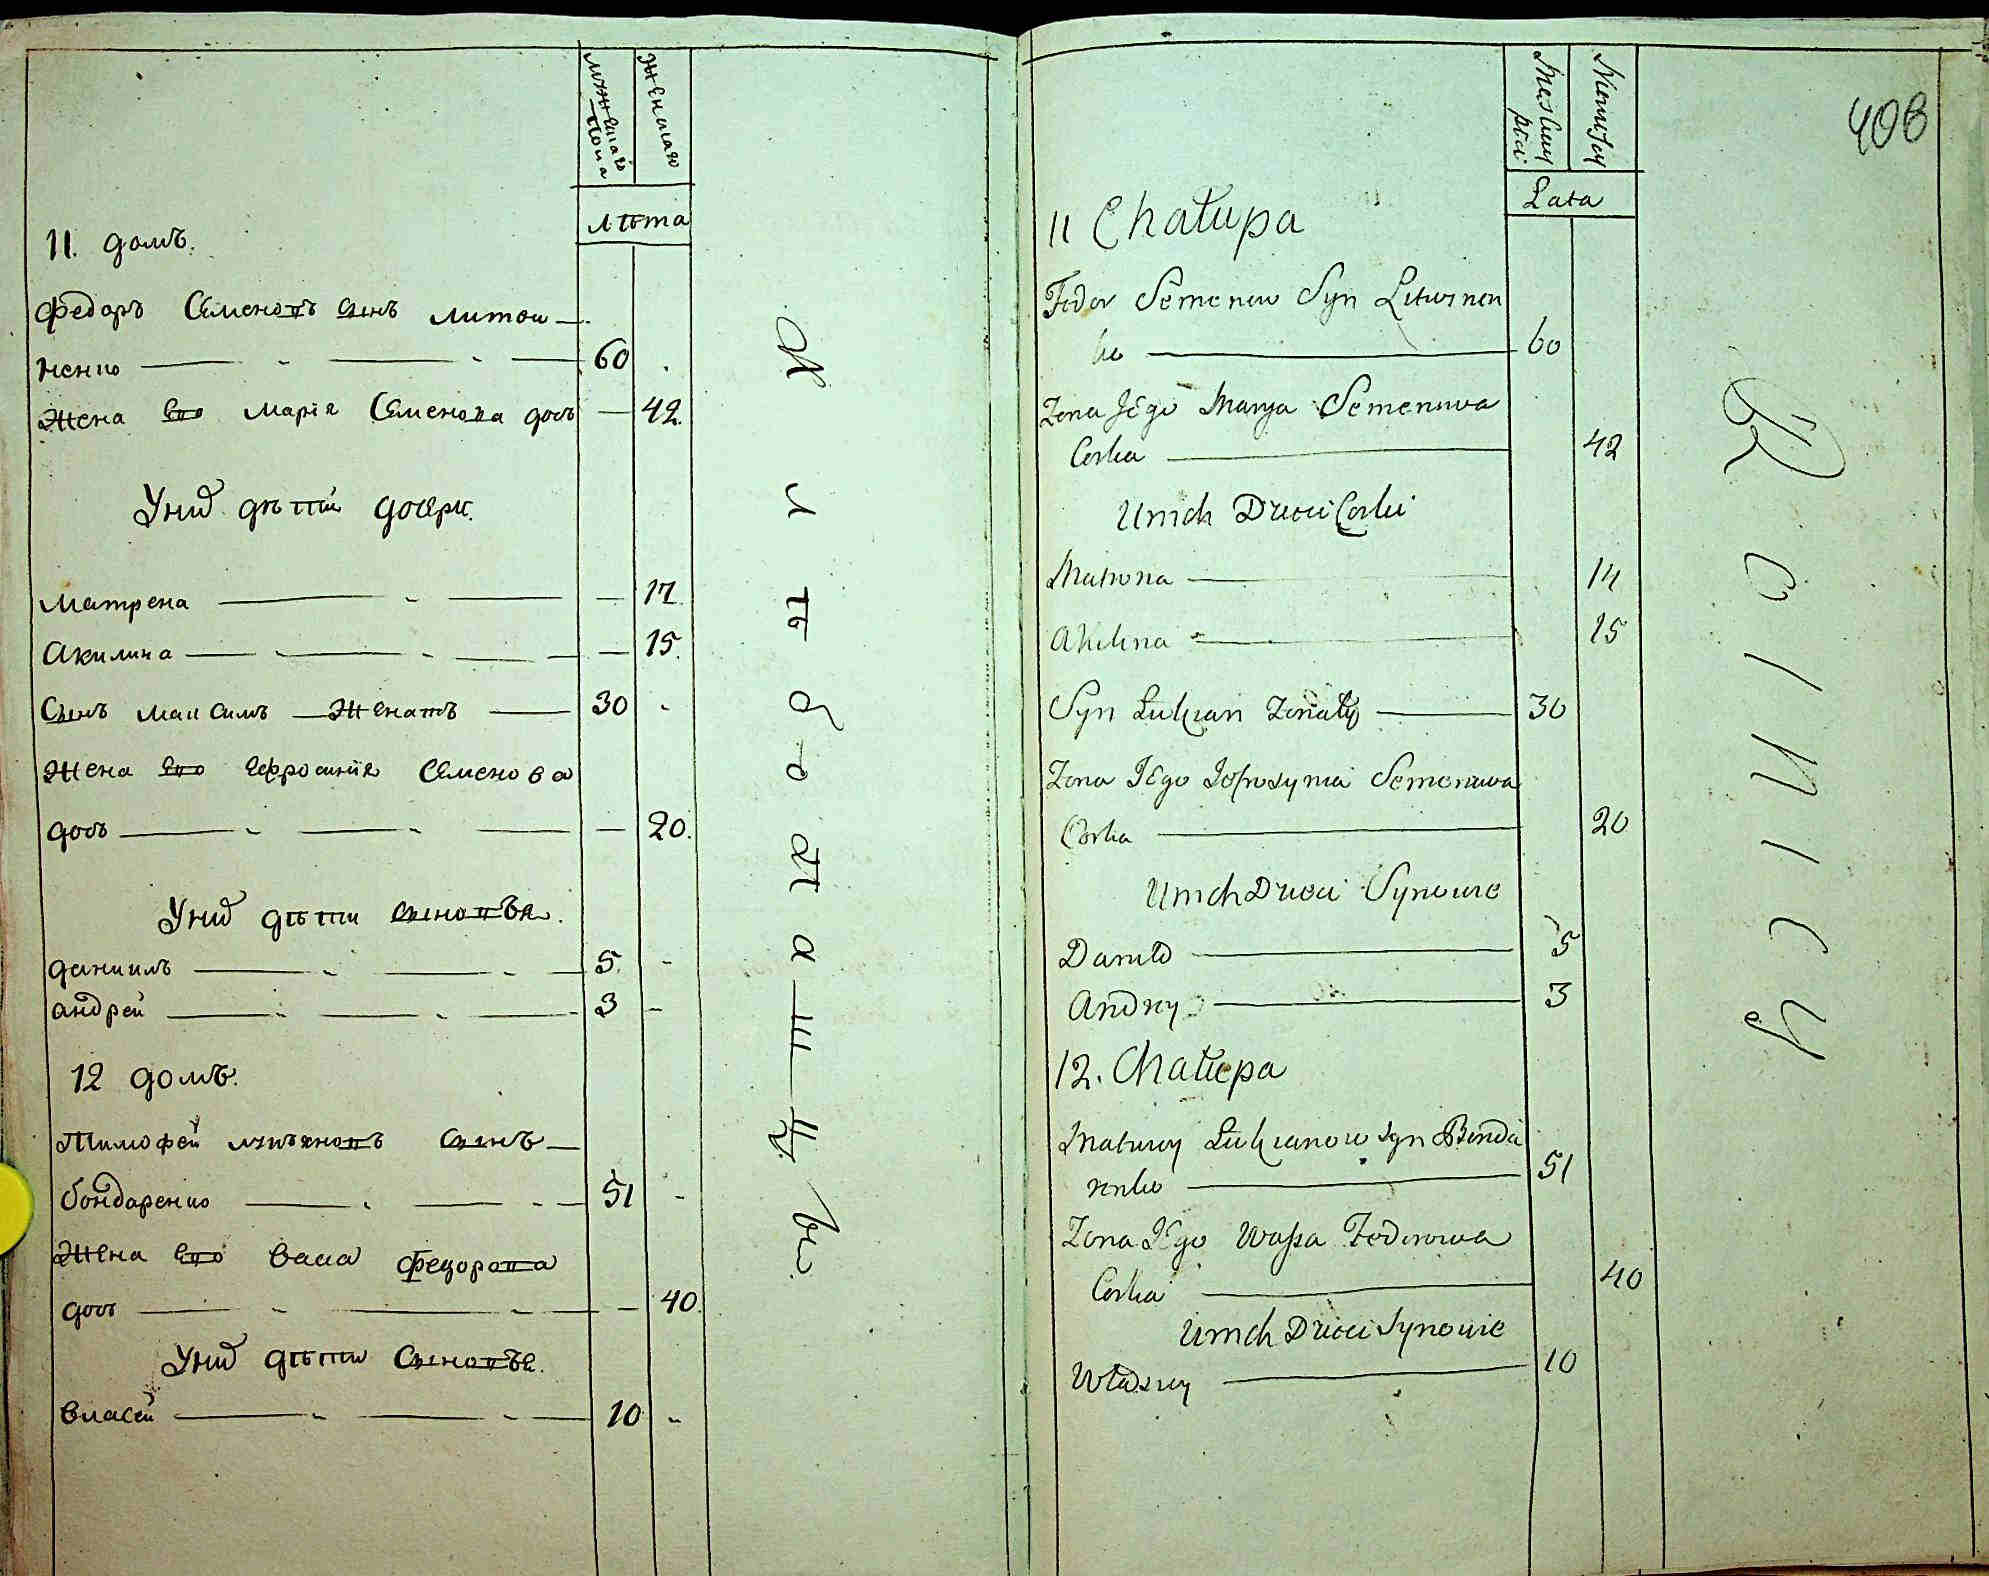 мужескаго
пола
женскаго
лѣта
11. домъ.
Федоръ Семеновъ сынъ литви-
ненко 60
Жена его Марія Семенова дочь 42.
У них дѣти дочери.
Матрена 17.
Акилина 15.
Сынъ Максимъ Женатъ 30
Жена его Ефросинія Семенова
дочь 20.
У них дѣти сыновья.
Даниилъ 5.
Андрей 3
12 домъ.
Тимофей лукъяновъ сынъ
бондаренко 51
Жена его Васа Федорова
дочь 40.
У них дѣти Сыновья.
Власей 10
Хлѣбопашцы
408
Męskiey
płci
Niewiesciey
Lata
11 Chałupa
Fedor Semenow Syn Litwinen
ko 60
Zona Jego Marya Semenowa
Corka 42
U nich Dzieci Corki
Matrona 14
Akilina 15
Syn Łukian Zonaty 30
Zona Jego Jefrosynia Semenowa
Corka 20
U nich Dzieci Synowie
Daniło 5
Andrzy 3
12. Chałupa
Matwiy Łukianow syn Bonda
renko 51
Zona Jego Wassa Fedorowa
Corka 40
U nich Dzieci Synowie
Własiy 10
Rolnicy